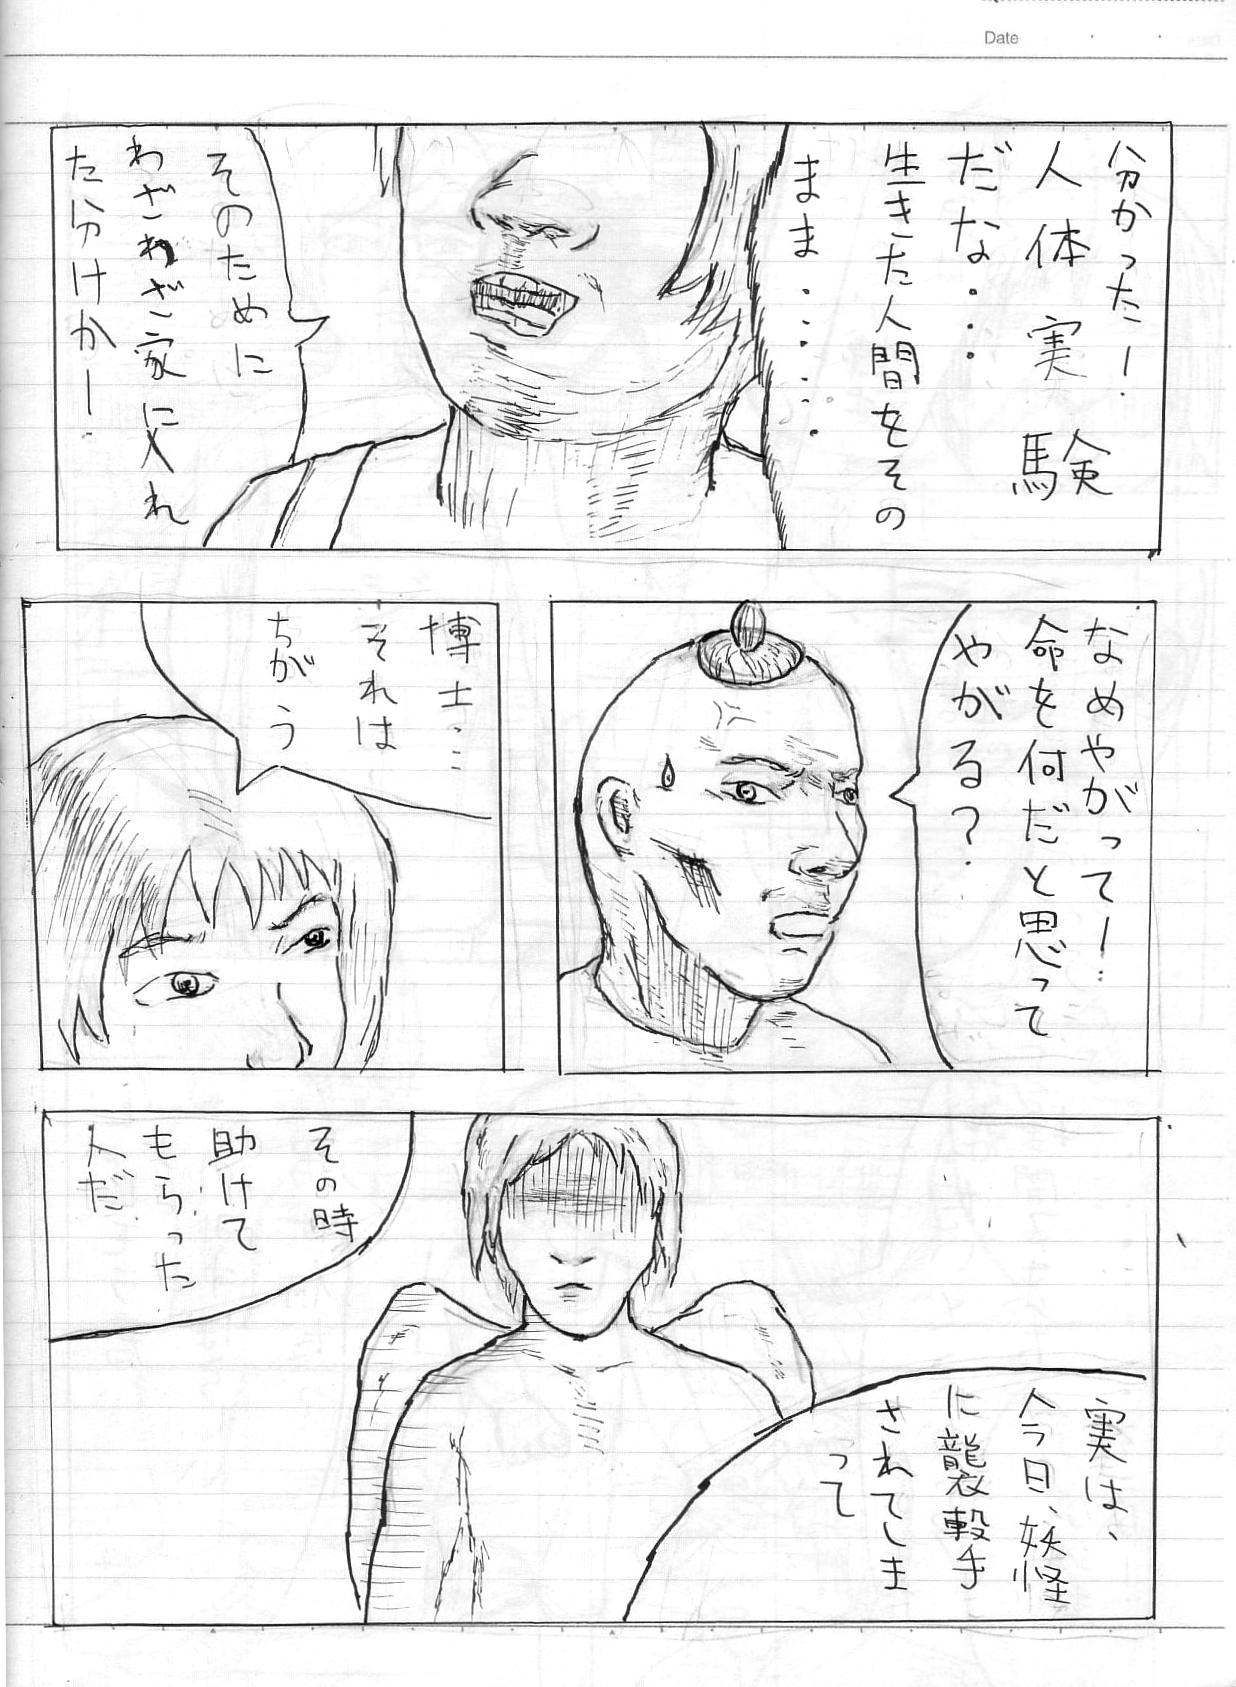 Date
分かったー!
人体実験
だな・・・
生きた人間をその
まま・・・・・・
そのために
わざわざ家に入れ
た分けかー!
なめやがってー!
命を何だと思って
やがる?
博士…
それは
ちがう
実は、
今日、妖怪
に襲撃
されてしま
って
その時
助けて
もらった
人だ